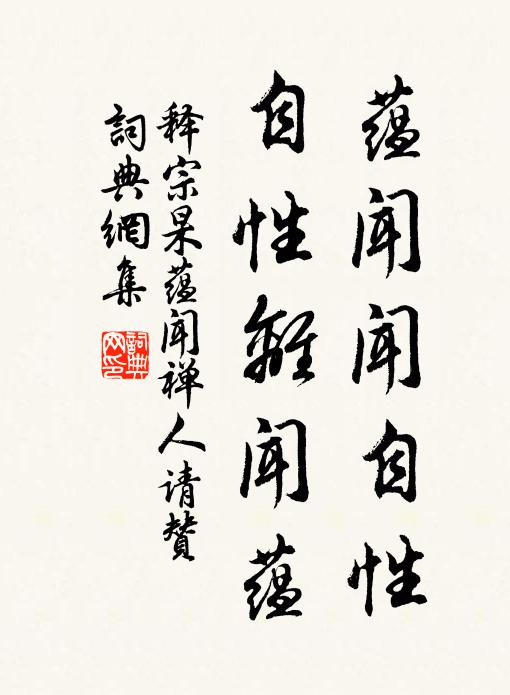 蘊闻闻自性
自性離闻蘊
释宗杲蘊闻禅人请赞
詞典網集
詞典網印